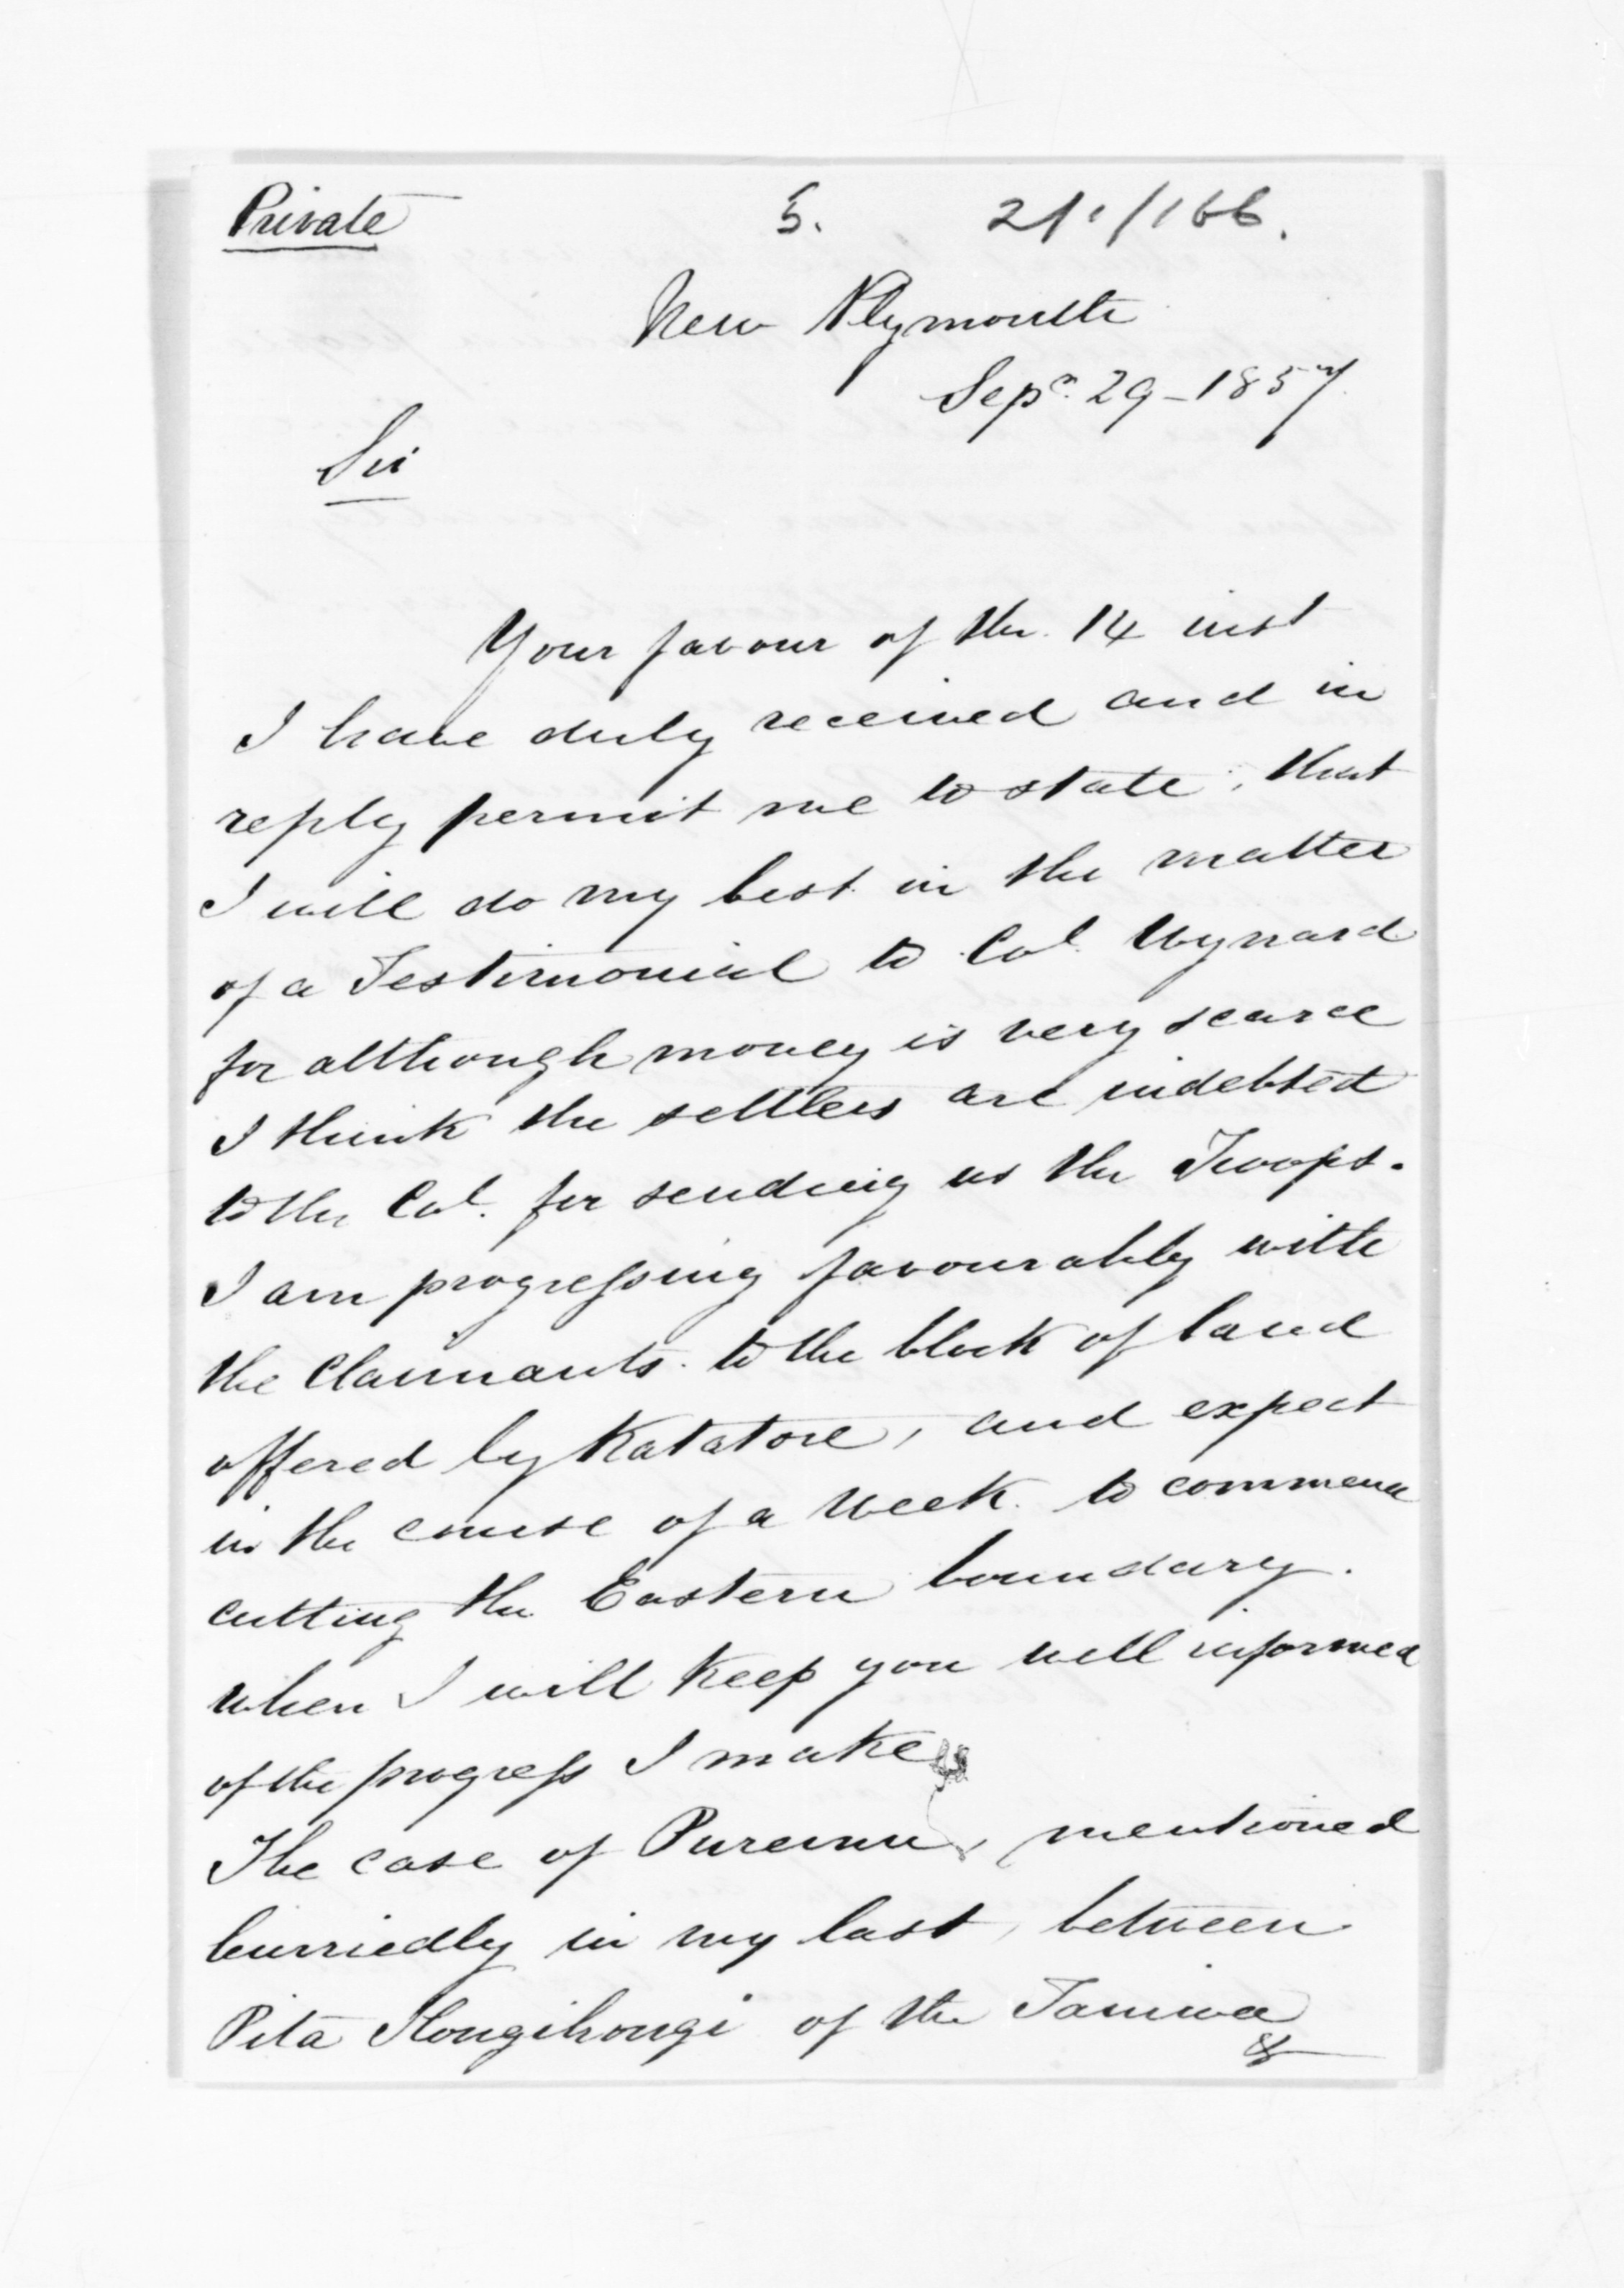 Private 5. 21/166.
New Plymouth
Sepr. 29 - 1857
Sir
Your favour of the 14 inst
I have duly received and in
reply permit me to state, that
I will do my best in the matter
of a Testimonial to Col. Wynard
for although money is very scarce
I think the settlers are indebted
to the Col. for sending us the Troops.
I am progressing favourably with
the Claimants to the block of land
offered by Katatore, and expect
in the course of a week to commence
cutting the Eastern boundary.
when I will keep you well informed
of the progress I make
The case of Puremu, mentioned
hurriedly in my last, between
Pita Hongihongi of the Taniwa
&